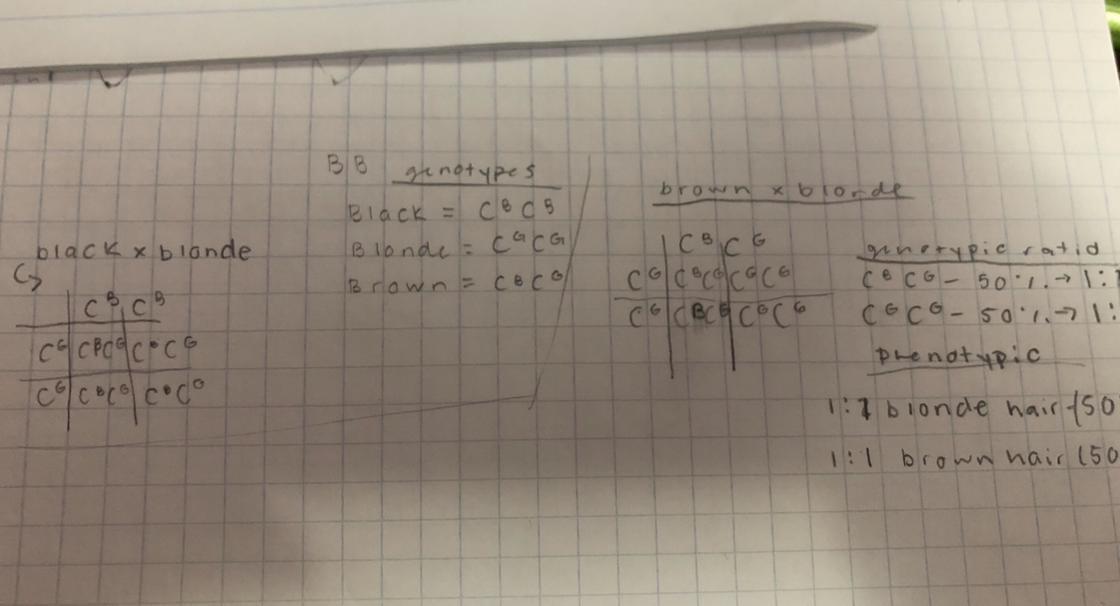 BB genotypes
Black = CᴮCᴮ
Blonde = CᴳCᴳ
Brown = CᴮCᴳ
black x blonde
Cᴮ Cᴮ
Cᴳ CᴮCᴳ CᴮCᴳ
Cᴳ CᴮCᴳ CᴮCᴳ
brown x blonde
Cᴮ Cᴳ
Cᴳ CᴮCᴳ CᴳCᴳ
Cᴳ CᴮCᴳ CᴳCᴳ
genotypic ratio
CᴮCᴳ - 50% → 1:
CᴳCᴳ - 50% → 1:
phenotypic
1:1 blonde hair (50
1:1 brown hair (50